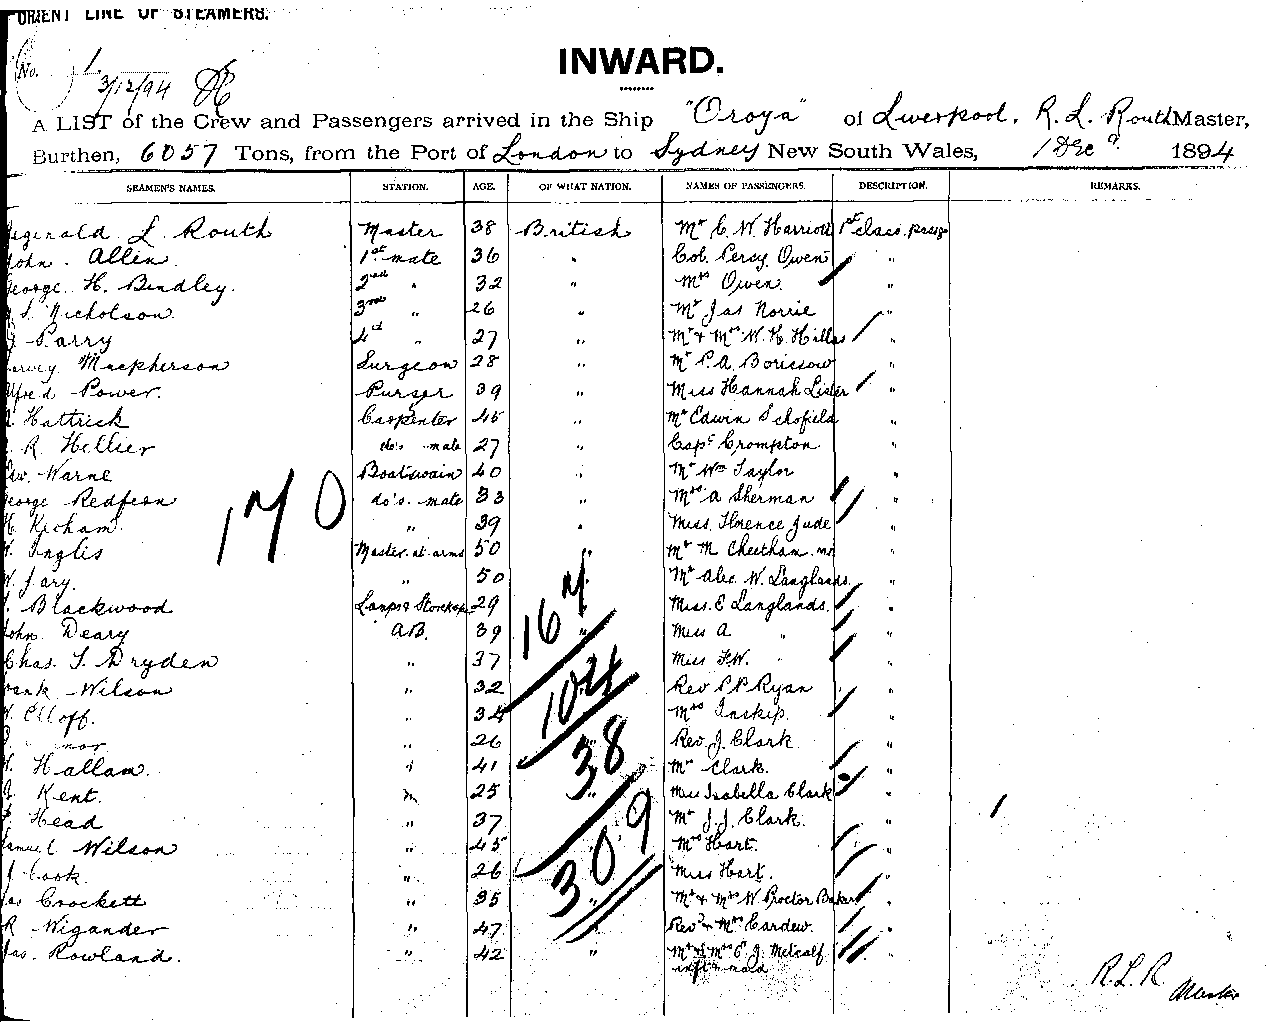 ORIENT LINE OF STEAMERS.
INWARD.
No. 1
3/12/94
A LIST of the Crew and Passengers arrived in the Ship "Oroya" of Liverpool, R. L. Routh Master,
Burthen, 6057 Tons, from the Port of London to Sydney New South Wales, 1 Dec 1894
SEAMEN'S NAMES. STATION. AGE. OF WHAT NATION. NAMES OF PASSENGERS. DESCRIPTION. REMARKS.
Reginald L. Routh Master 38 British Mr C. W. Harriott 1st class passgr
John Allen 1st mate 36 " Col. Percy Owen "
George H. Bindley. 2nd " 32 " Mrs Owen "
S. Nicholson. 3rd " 26 " Mr Jas Norrie "
Parry 4th " 27 " Mr & Mrs W. H. Hillas "
Harvey Macpherson Surgeon 28 " Mr P. A. Borissow "
Alfred Power. Purser 39 " Miss Hannah Lister "
Hattrick Carpenter 45 " Mr Edwin Schofield "
R. Hellier do's mate 27 " Capt Crompton "
Warne Boatswain 40 " Mr Wm Taylor "
George Redfern do's mate 33 " Mrs A Sherman "
Kecham " 39 " Miss Florence Jude "
Inglis Master at arms 50 " Mr M Cheetham "
W. Jary. " 50 Mr Alec. W. Langlands "
Blackwood Lamps & Storekpr 29 Miss. E Langlands. "
John Deary A.B. 39 " Miss A " "
Chas. T. Dryden " 37 Miss F. W. " "
Frank Wilson " 32 Rev P. P. Ryan "
Elloff. " 34 Mrs Inskip. "
" 26 Rev J. Clark "
Hallam. " 41 Mrs Clark. "
Kent. " 25 Miss Isabella Clark "
Head " 37 Mr J. J. Clark. "
Samuel Wilson " 45 Mrs Hart. "
J Cook. " 26 Miss Hart. "
Jas Crockett " 35 " Mr & Mrs W Proctor Baker "
R Wigander " 47 " Revd & Mrs Cardew. "
Jas. Rowland. " 42 " Mr & Mrs E. J. Metcalf "
inft & maid
170
167
104
38
309
R. L. R
Master